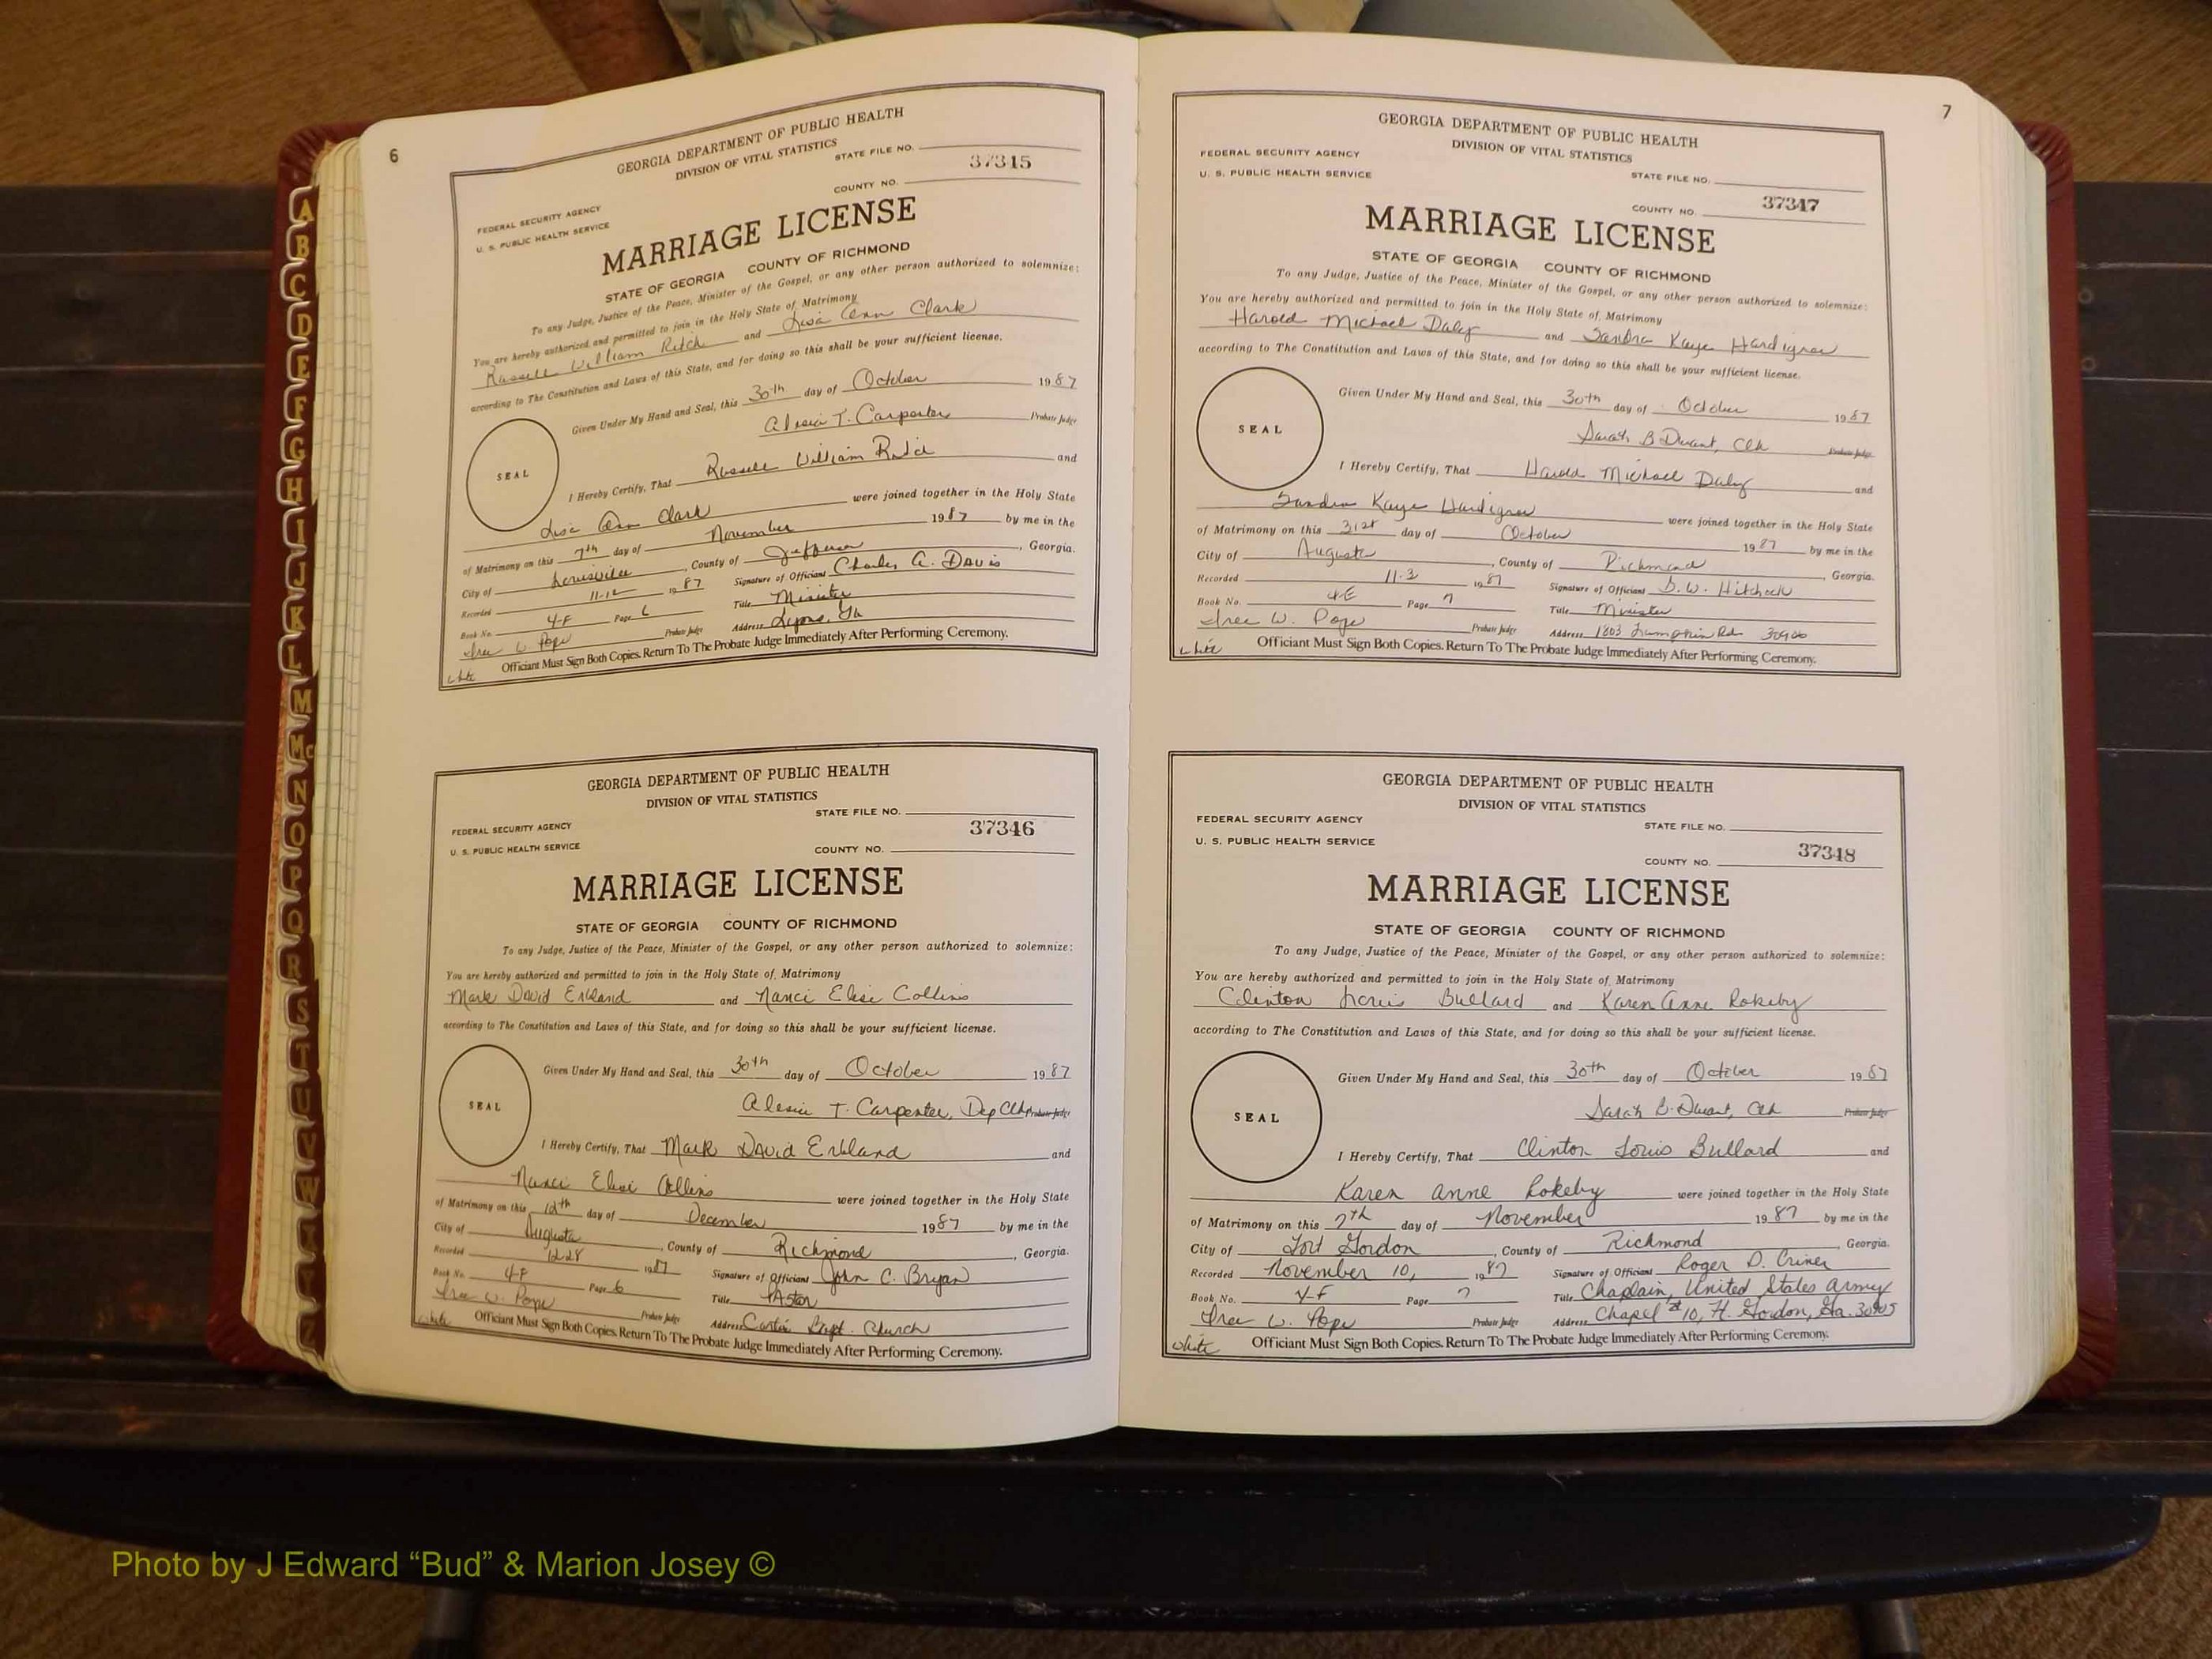 6
GEORGIA DEPARTMENT OF PUBLIC HEALTH
DIVISION OF VITAL STATISTICS
STATE FILE NO.
37315
COUNTY NO.
FEDERAL SECURITY AGENCY
U. S. PUBLIC HEALTH SERVICE
MARRIAGE LICENSE
STATE OF GEORGIA COUNTY OF RICHMOND
To any Judge, Justice of the Peace, Minister of the Gospel, or any other person authorized to solemnize:
You are hereby authorized and permitted to join in the Holy State of Matrimony
Russell William Ritch and Lisa Ann Clark
according to The Constitution and Laws of this State, and for doing so this shall be your sufficient license.
Given Under My Hand and Seal, this 30th day of October 1987
Alesia T. Carpenter Probate Judge
SEAL
I Hereby Certify, That Russell William Ritch and
Lisa Ann Clark were joined together in the Holy State
of Matrimony on this 7th day of November 1987 by me in the
City of Louisville, County of Jefferson, Georgia.
Recorded 11-12 1987 Signature of Officiant Charles A. Davis
Book No. 4-F Page 6 Title Minister
W. Pope Probate Judge Address Lyons, Ga
white Officiant Must Sign Both Copies. Return To The Probate Judge Immediately After Performing Ceremony.
GEORGIA DEPARTMENT OF PUBLIC HEALTH
DIVISION OF VITAL STATISTICS
STATE FILE NO.
FEDERAL SECURITY AGENCY
37346
U. S. PUBLIC HEALTH SERVICE
COUNTY NO.
MARRIAGE LICENSE
STATE OF GEORGIA COUNTY OF RICHMOND
To any Judge, Justice of the Peace, Minister of the Gospel, or any other person authorized to solemnize:
You are hereby authorized and permitted to join in the Holy State of Matrimony
Mark David and Nanci Elise Collins
according to The Constitution and Laws of this State, and for doing so this shall be your sufficient license.
Given Under My Hand and Seal, this 30th day of October 1987
Alesia T. Carpenter, Dep Clk Probate Judge
SEAL
I Hereby Certify, That Mark David and
Nanci Elise Collins were joined together in the Holy State
of Matrimony on this 12th day of December 1987 by me in the
City of Augusta, County of Richmond, Georgia.
Recorded 12-28 1987 Signature of Officiant John C. Bryan
Book No. 4-F Page 6 Title PAstor
W. Pope Probate Judge Address Bapt. Church
white Officiant Must Sign Both Copies. Return To The Probate Judge Immediately After Performing Ceremony.
7
GEORGIA DEPARTMENT OF PUBLIC HEALTH
DIVISION OF VITAL STATISTICS
FEDERAL SECURITY AGENCY
U. S. PUBLIC HEALTH SERVICE
STATE FILE NO.
37347
COUNTY NO.
MARRIAGE LICENSE
STATE OF GEORGIA COUNTY OF RICHMOND
To any Judge, Justice of the Peace, Minister of the Gospel, or any other person authorized to solemnize:
You are hereby authorized and permitted to join in the Holy State of Matrimony
Harold Michael Daly and Sandra Kaye Hardigree
according to The Constitution and Laws of this State, and for doing so this shall be your sufficient license.
Given Under My Hand and Seal, this 30th day of October 1987
Sarah B. Durant, Clk Probate Judge
SEAL
I Hereby Certify, That Harold Michael Daly and
Sandra Kaye Hardigree were joined together in the Holy State
of Matrimony on this 31st day of October 1987 by me in the
City of Augusta, County of Richmond, Georgia.
Recorded 11-3 1987 Signature of Officiant W. Hitchock
Book No. Page 7 Title Minister
W. Pope Probate Judge Address 1803 Rd
white Officiant Must Sign Both Copies. Return To The Probate Judge Immediately After Performing Ceremony.
GEORGIA DEPARTMENT OF PUBLIC HEALTH
DIVISION OF VITAL STATISTICS
FEDERAL SECURITY AGENCY
STATE FILE NO.
U. S. PUBLIC HEALTH SERVICE
37348
COUNTY NO.
MARRIAGE LICENSE
STATE OF GEORGIA COUNTY OF RICHMOND
To any Judge, Justice of the Peace, Minister of the Gospel, or any other person authorized to solemnize:
You are hereby authorized and permitted to join in the Holy State of Matrimony
Clinton Louis Bullard and Karen Anne Rokeby
according to The Constitution and Laws of this State, and for doing so this shall be your sufficient license.
Given Under My Hand and Seal, this 30th day of October 1987
Sarah B. Durant, Clk Probate Judge
SEAL
I Hereby Certify, That Clinton Louis Bullard and
Karen Anne Rokeby were joined together in the Holy State
of Matrimony on this 7th day of November 1987 by me in the
City of Fort Gordon, County of Richmond, Georgia.
Recorded November 10, 1987 Signature of Officiant Roger D. Criner
Book No. 4-F Page 7 Title Chaplain, United States Army
W. Pope Probate Judge Address Chapel #10, Ft. Gordon, Ga. 30905
white Officiant Must Sign Both Copies. Return To The Probate Judge Immediately After Performing Ceremony.
A
B
C
D
E
F
G
H
I
J
K
L
M
Mc
N
O
P
Q
R
S
T
U
V
W
Photo by J Edward “Bud” & Marion Josey ©